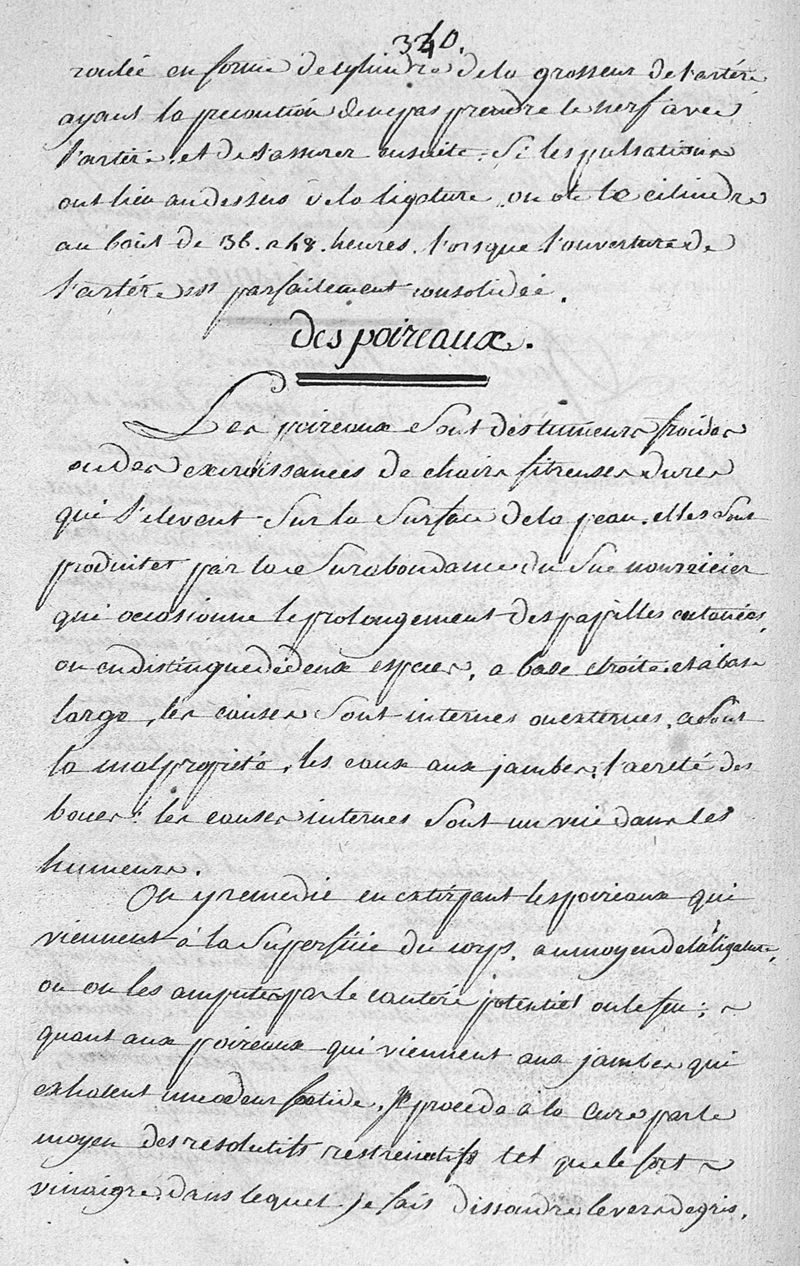 340.
roulée en forme de cylindre de la grosseur de l'artére
ayant la precaution de ne pas prendre le nerf avec
l'artére, et de s'assurer ensuite. Si les pulsations
ont lieu au dessus de la ligature, on ote le cilindre
au bout de 36. a 48. heures. lorsque l'ouverture de
l'artére est parfaitement consolidée.
des poireaux.
Les poireaux Sont des tumeurs froides
ou des excroissances de chairs fibreuses dures
qui s'elevent Sur la Surface de la peau. elles Sont
produites par la Surabondance du Suc nourricier
qui occasionne le prolongement des papilles cutanées,
on en distingue de deux especes, a base etroite. et à base
large, les causes Sont internes ou externes, ce Sont
la malpropreté, les eaux aux jambes, l'acreté des
boues: les causes internes Sont un vice dans les
humeurs.
On y remedie en extirpant les poireaux qui
viennent à la Superficie du corps. au moyen de la ligature,
ou on les ampute par le cautére potentiel ou le feu;
quant aux poireaux qui viennent aux jambes qui
exhalent une odeur foetide, je procede a la cure par le
moyen des resolutifs restreintifs tel que le fort
vinaigre. dans lequel je fais dissoudre le verd de gris.